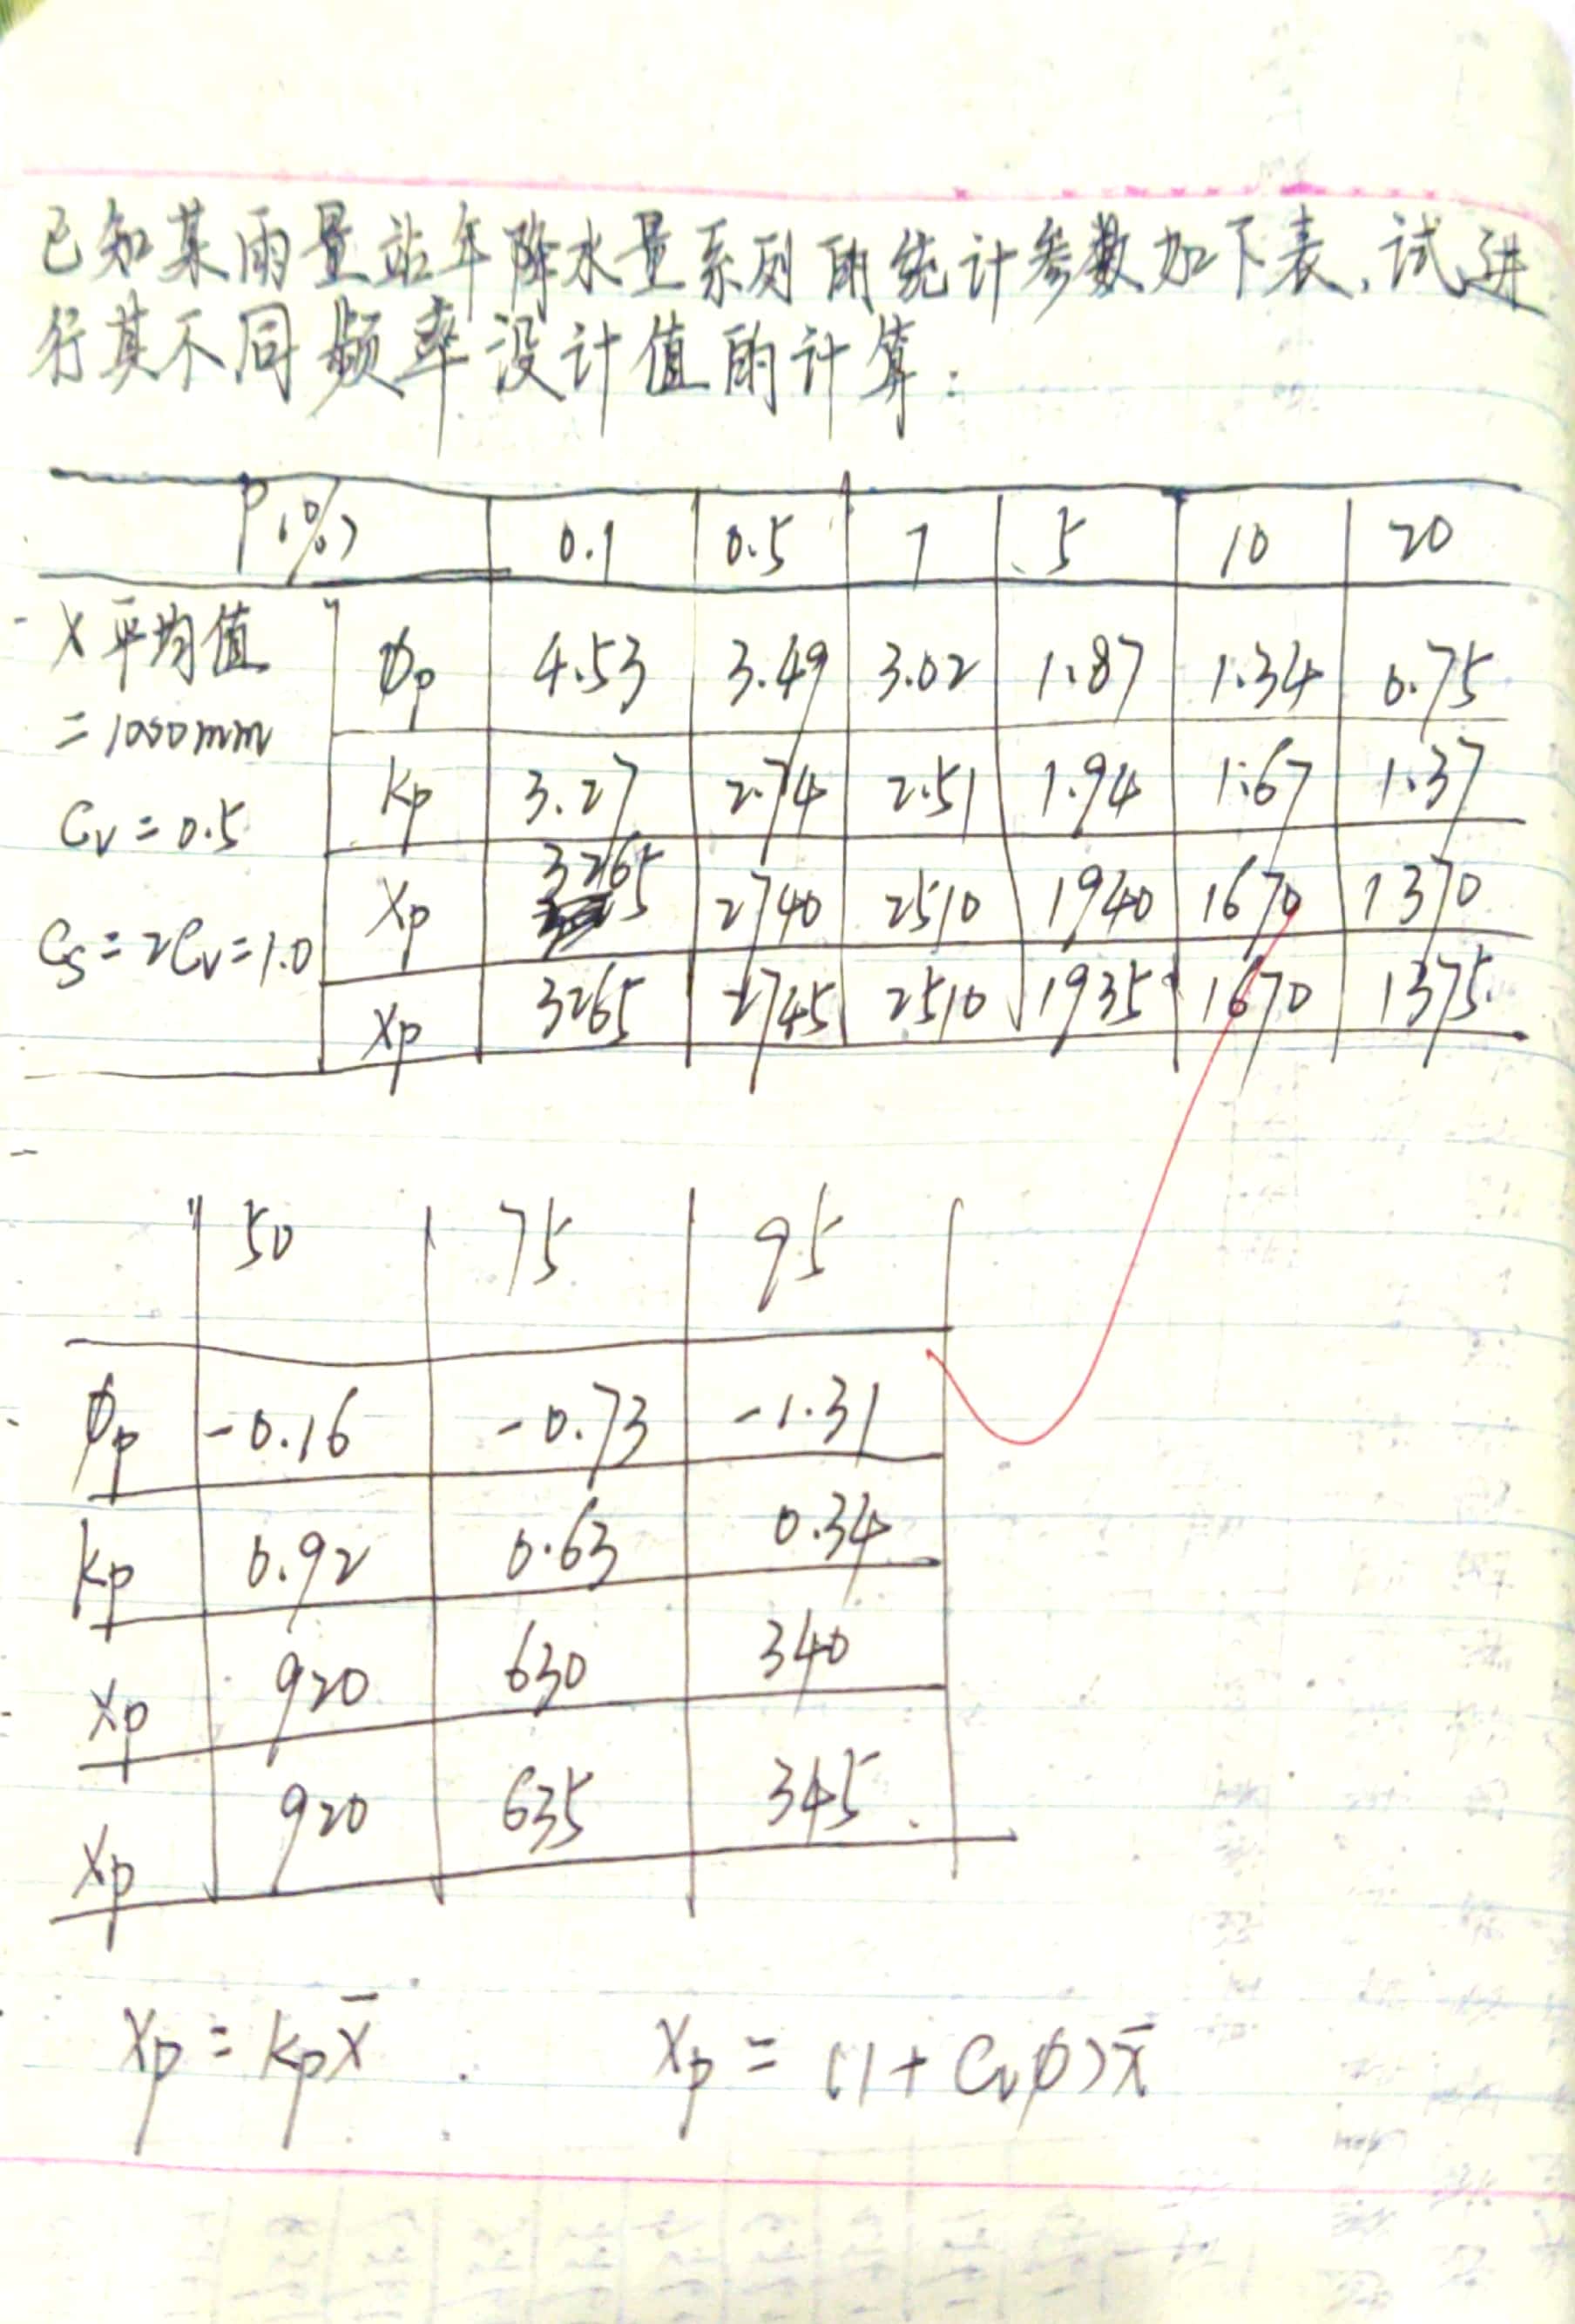 已知某雨量站年降水量系列的统计参数如下表.试进
行其不同频率设计值的计算:
P(%) 0.1 0.5 1 5 10 20
X平均值 Φp 4.53 3.49 3.02 1.87 1.34 0.75
=1000mm
Kp 3.27 2.74 2.51 1.94 1.67 1.37
Cv=0.5
Xp 3265 2740 2510 1940 1670 1370
Cs=2Cv=1.0
Xp 3265 2745 2510 1935 1670 1375.
50 75 95
Φp -0.16 -0.73 -1.31
Kp 0.92 0.63 0.34
Xp 920 630 340
Xp 920 635 345.
Xp=Kpx̄. Xp=(1+CvΦ)x̄